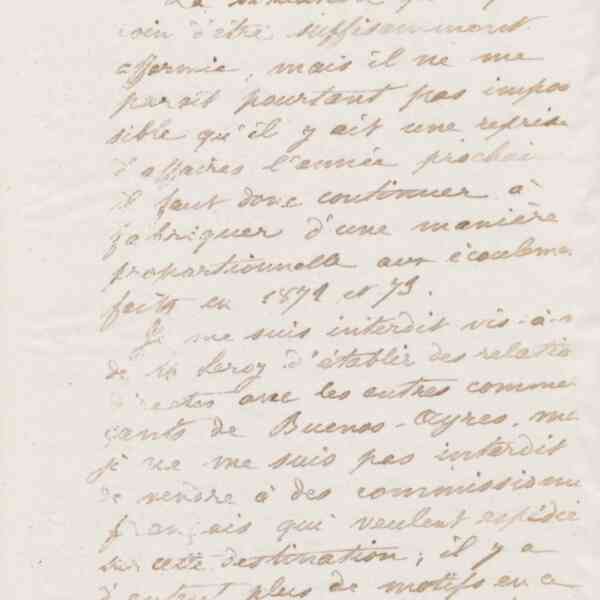 loin d'être suffisamment
affermie, mais il ne me
parait pourtant pas impos
sible qu'il y ait une reprise
d'affaires l'année prochai
il faut donc continuer à
fabriquer d'une manière
proportionnelle aux écouleme
faits en 187 et 73.
Je me suis interdit vis-à-v
de Mr Leroy d'établir des relatio
directes avec les autres comme
çants de Buenos-Ayres, ma
je ne me suis pas interdit
de vendre à des commissionn
français qui veulent expédie
sur cette destination; il y a
d'autant plus de motifs en a